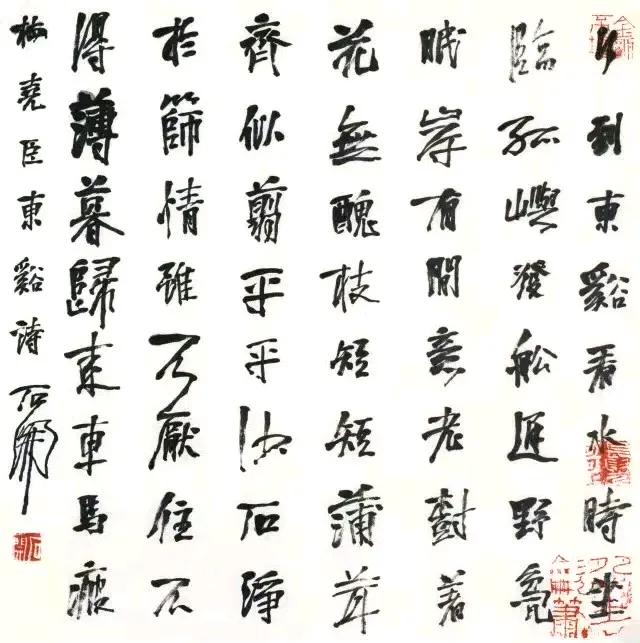 行到東谿看水時坐
臨孤嶼發船遲野鳧
眠岸有閒意老樹著
花無醜枝短短蒲茸
齊似翦平平沙石淨
於篩情雖不厭住不
得薄暮歸来車馬疲
梅堯臣東谿詩 石開